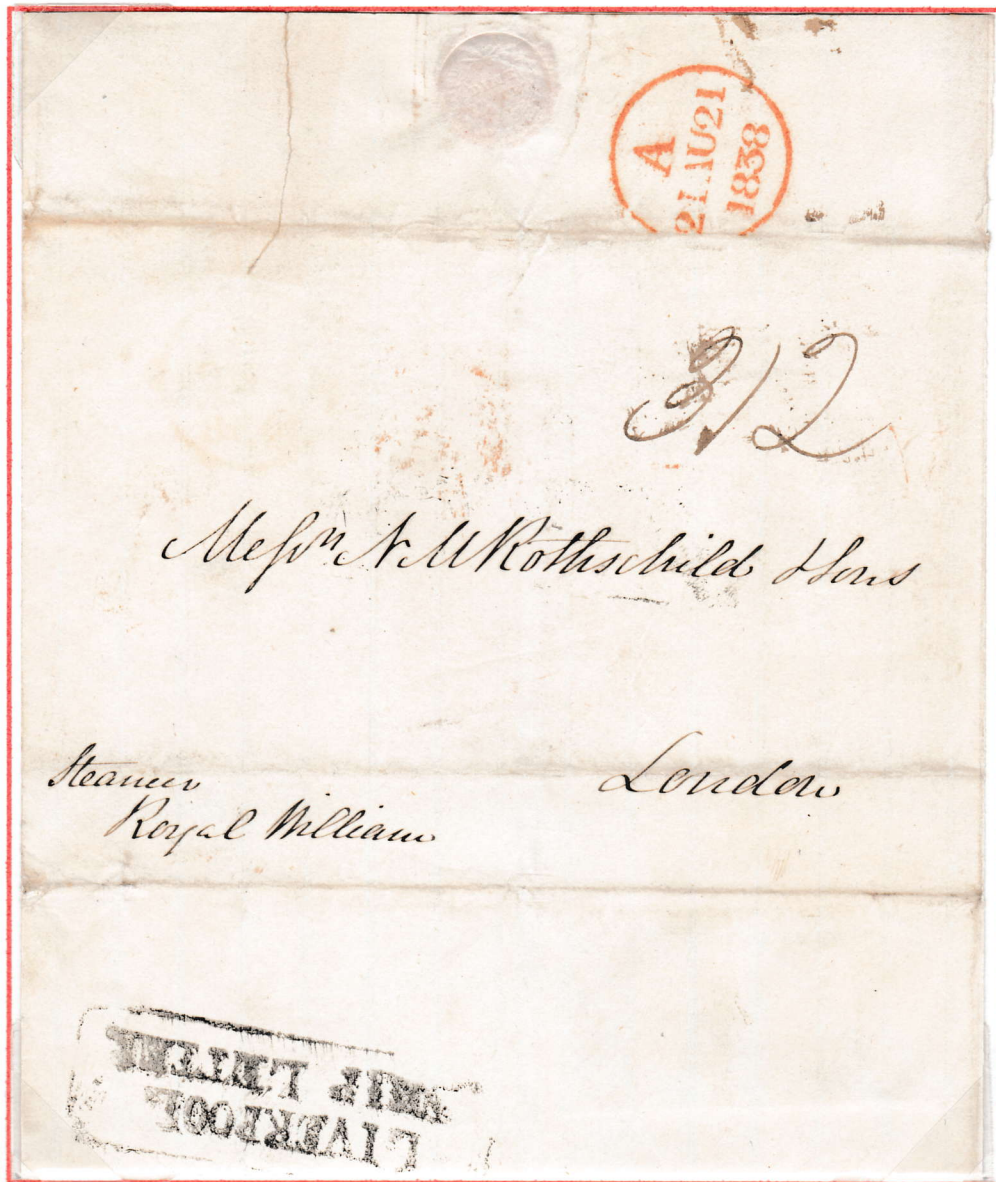 A
21 AU 21
1838
3/2
Messrs N M Rothschild & Sons
London
Steamer
Royal William
LIVERPOOL
SHIP LETTER